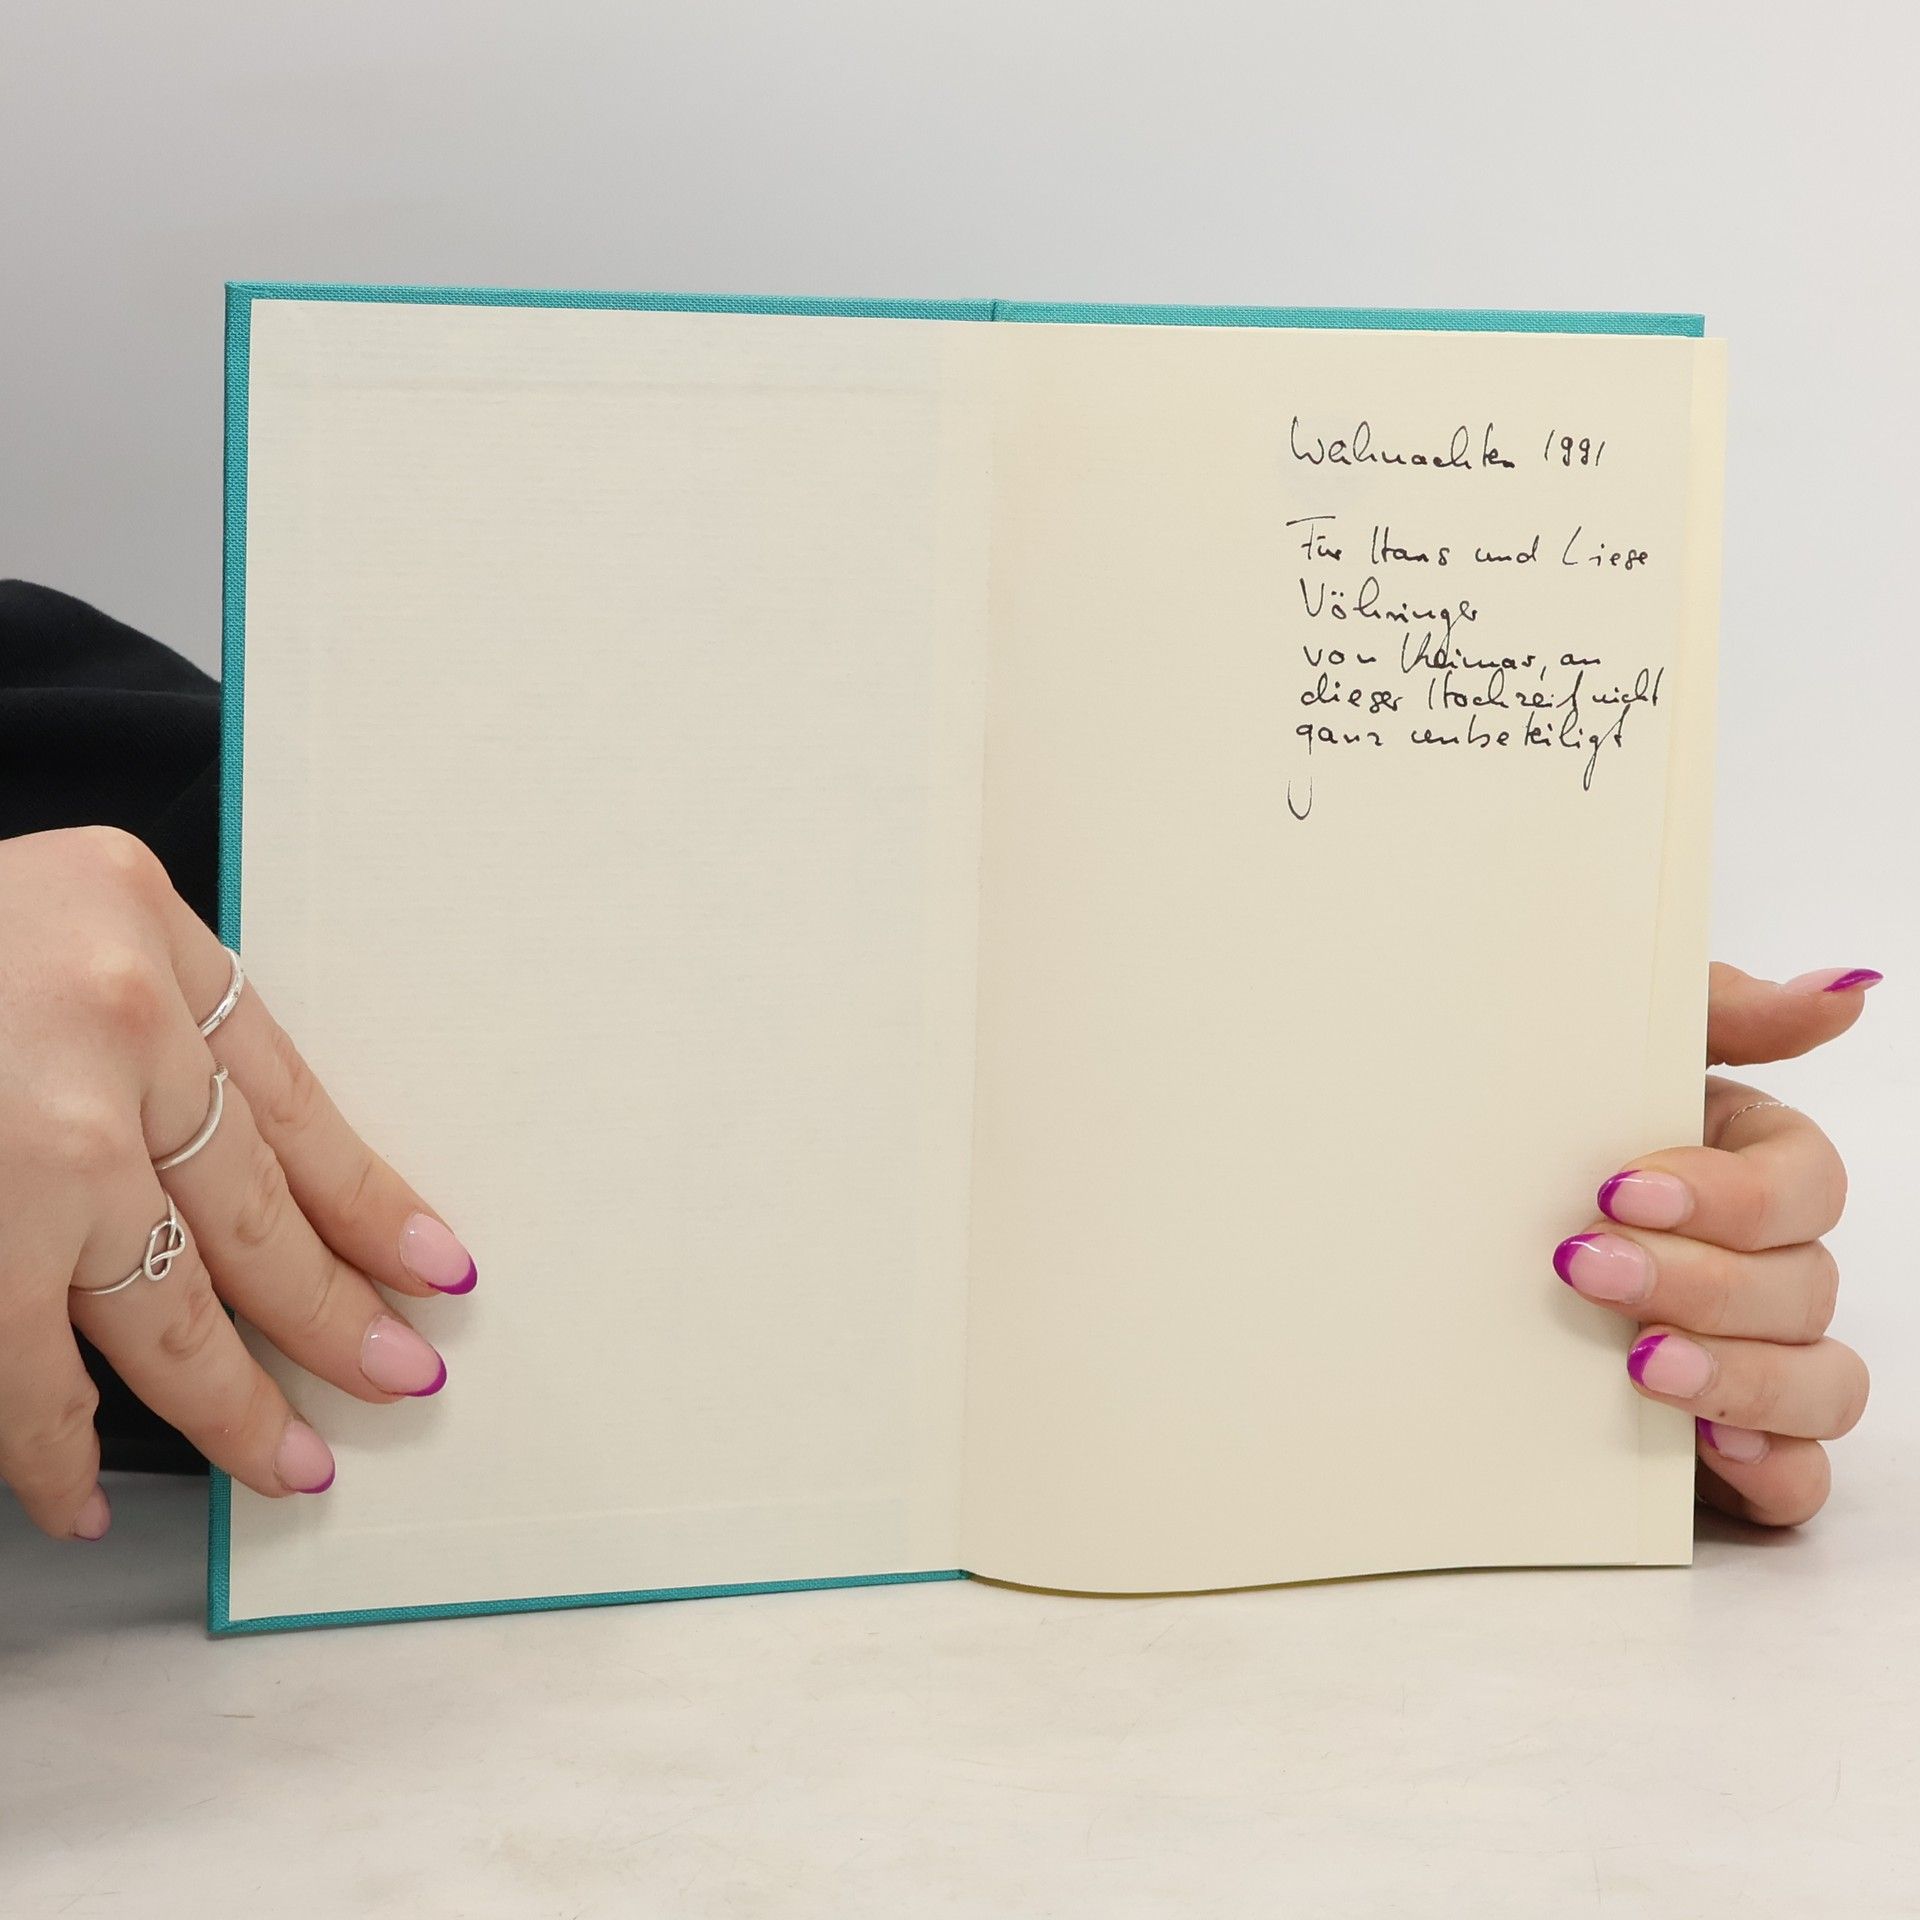 Weihnachten 1991
Für Hans und Liese
Vöhringer
von Reimar, an
dieser Hochzeit nicht
ganz unbeteiligt